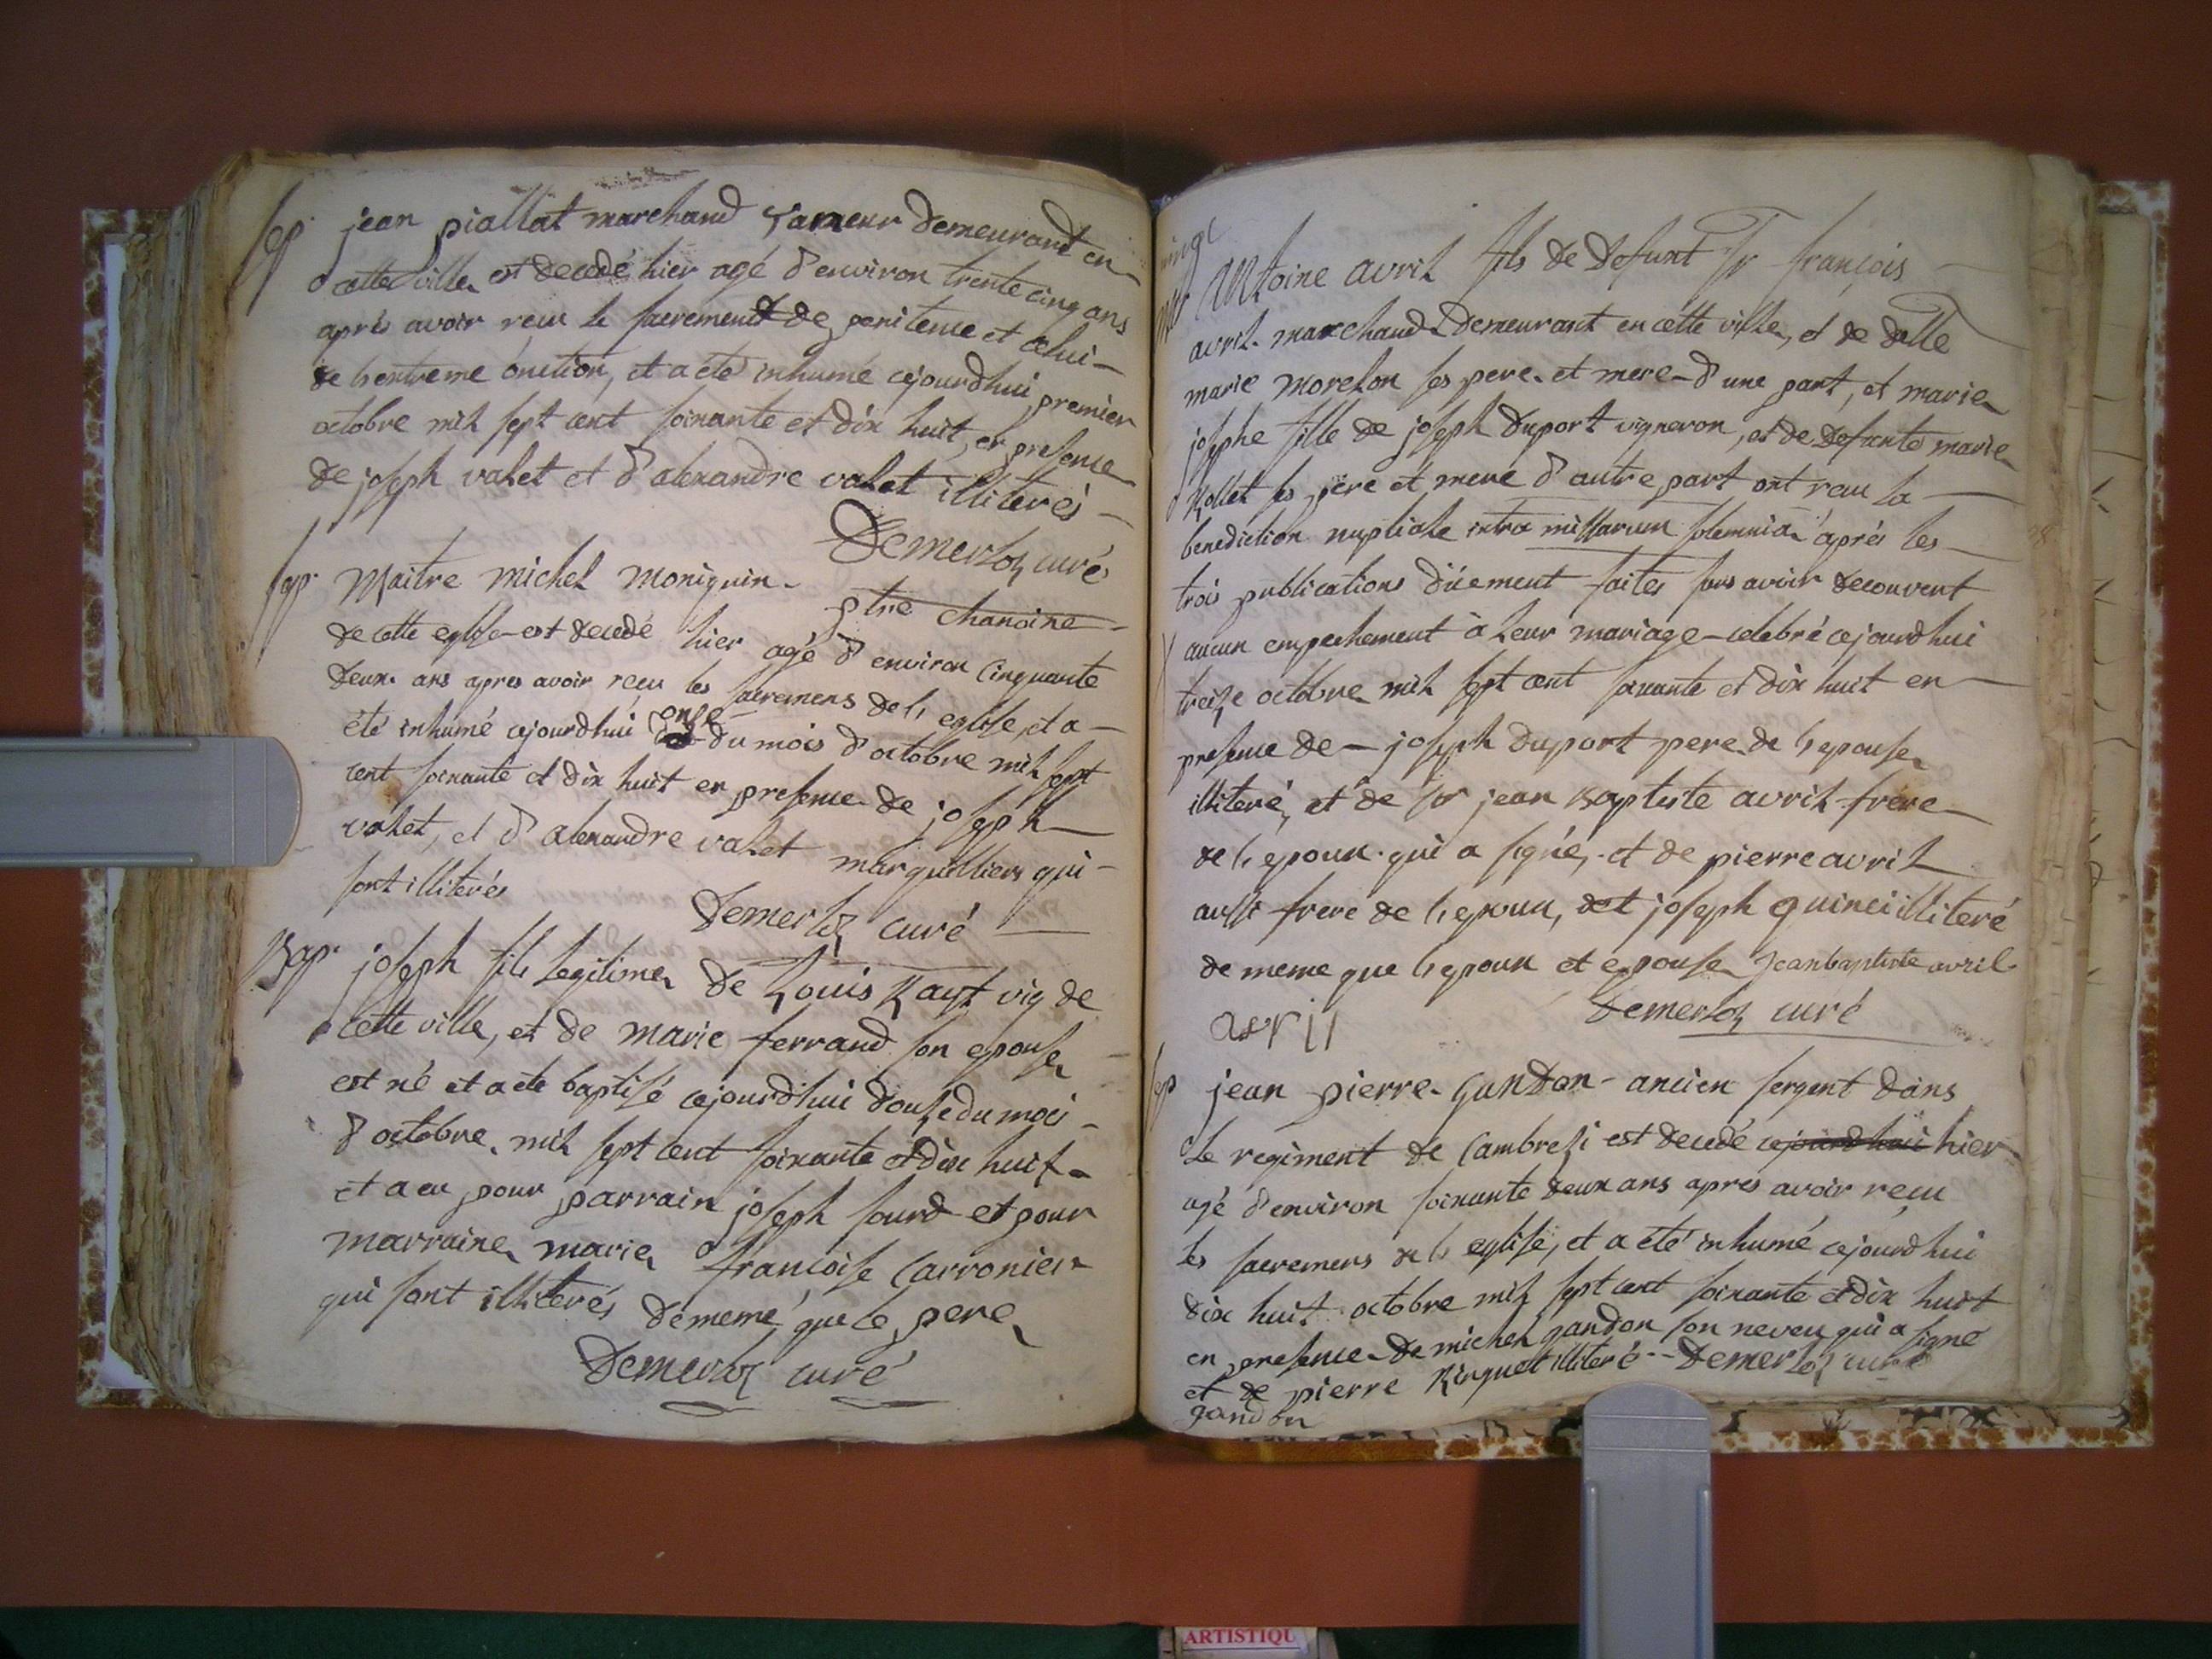 Sep. jean piallat marchand taneur demeurant en
cette ville est decedé hier agé d'environ trente cinq ans
aprés avoir reçu le sacrement de penitence et celui
de l'extreme onction, et a été inhumé cejourdhui premier
octobre mil sept cent soixante et dix huit, en presence
de joseph valet et d'alexandre valet illiterés
Demerloz curé
Sep. Maitre michel moniquin ptre chanoine
de cette eglise est decedé hier agé d'environ cinquante
deux ans apres avoir reçu les sacremens de l'eglise, et a
été inhumé cejourdhui onse du mois d'octobre mil sept
cent soixante et dix huit en presence de joseph
valet, et d'alexandre valet marguilliers qui
sont illiterés Demerloz curé
Bap. joseph fils legitime de Louis Rayt vig de
cette ville, et de marie ferrand son epouse
est né et a eté baptisé cejourdhui douse du mois
d'octobre mil sept cent soixante et dix huit
et a eu pour parrain joseph sourd et pour
marraine marie françoise Carronier
qui sont illiterés de meme que le pere
Demerloz curé
Antoine avril fils de defunt Sr françois
avril marchand demeurant en cette ville, et de delle
marie morelon ses pere et mere d'une part, et marie
josephe fille de joseph duport vigneron, et de defunte marie
Rollet ses pere et mere d'autre part ont reçu la
benediction nuptiale intra missarum solemnia aprés les
trois publications düement faites sans avoir decouvert
aucun empechement à leur mariage celebré cejourdhui
treize octobre mil sept cent soixante et dix huit en
presence de joseph duport pere de l'epouse
illiteré, et de sr jean Baptiste avril frere
de l'epoux qui a signé, et de pierre avril
aussi frere de l'epoux, et joseph quinci illiteré
de meme que l'epoux et epouse Jean baptiste avril
Demerloz curé
avril
Sep jean pierre Gandon ancien sergent dans
le regiment de Cambresi est decedé cejourdhui hier
agé d'environ soixante deux ans apres avoir reçu
les sacremens de l'eglise, et a été inhumé cejourdhui
dix huit octobre mil sept cent soixante et dix huit
en presence de michel gandon son neveu qui a signé
et de pierre Rinquet illiteré Demerloz curé
gandon
ARTISTIQU